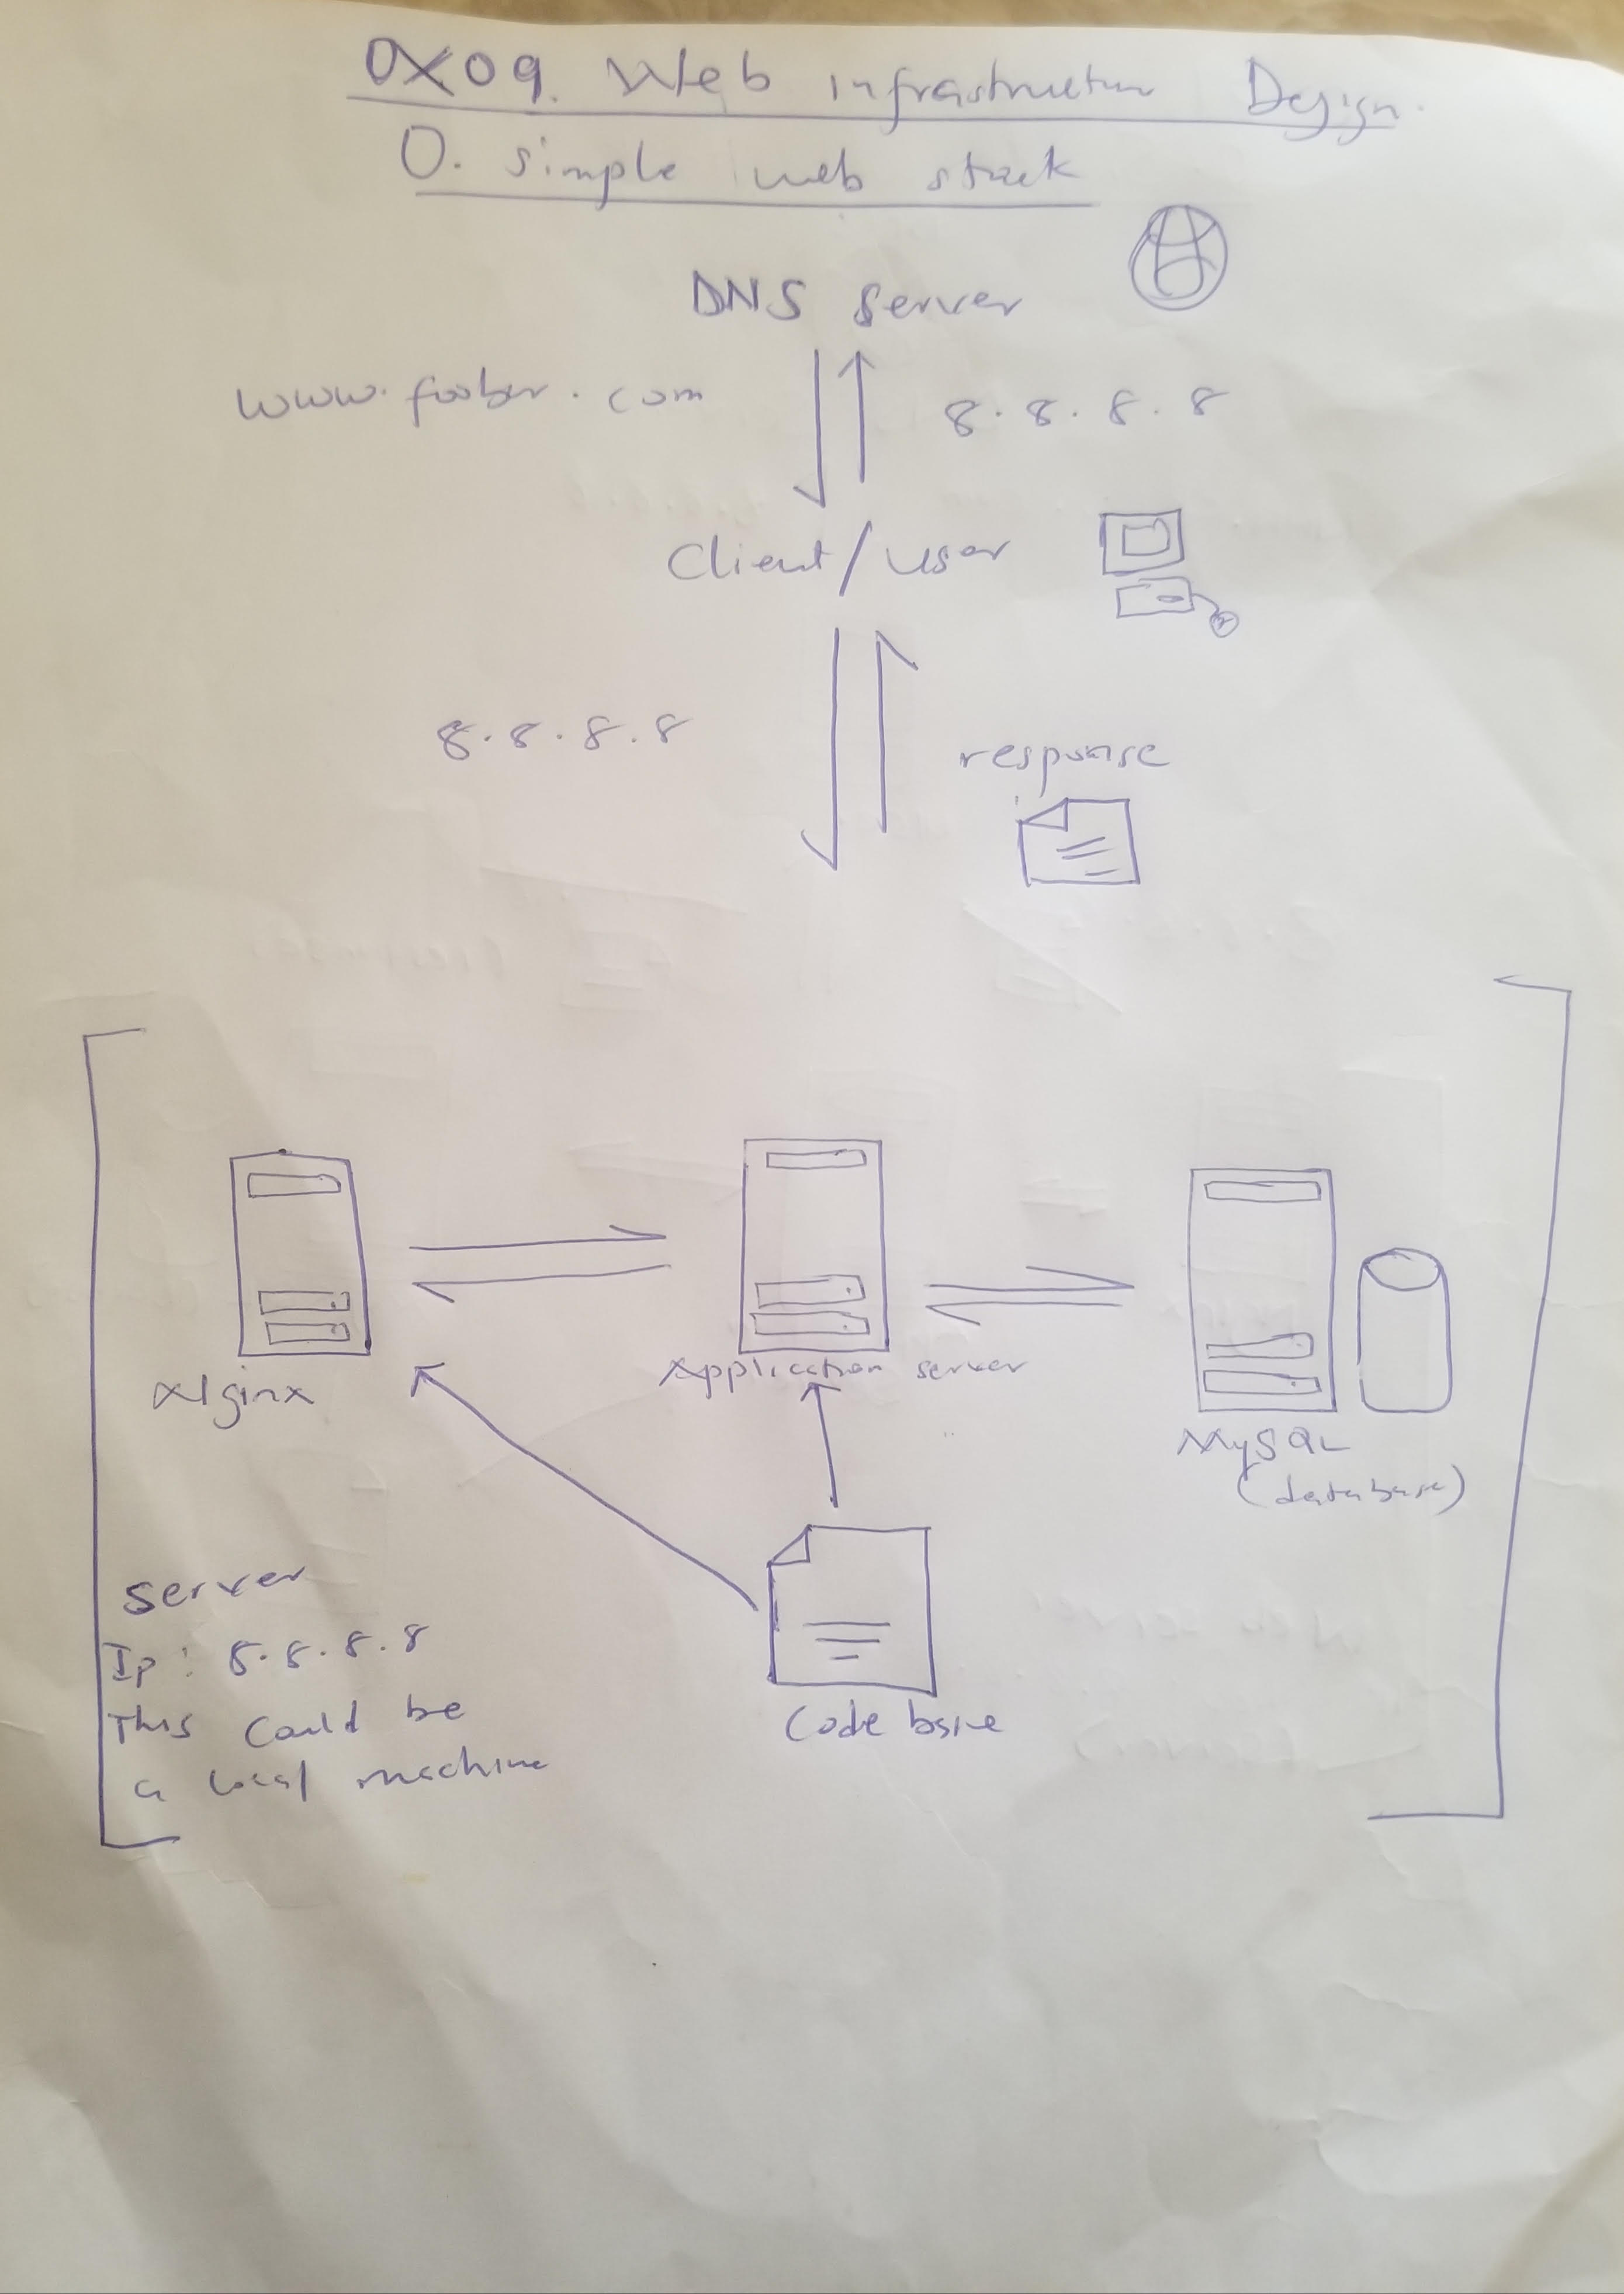 0X09. Web infrastructure Design.
0. Simple web stack
DNS Server
www.foobar.com
8.8.8.8
Client/user
8.8.8.8
response
Nginx
Application server
MySQL
(database)
Server
Ip: 8.8.8.8
This could be
a local machine
Code base